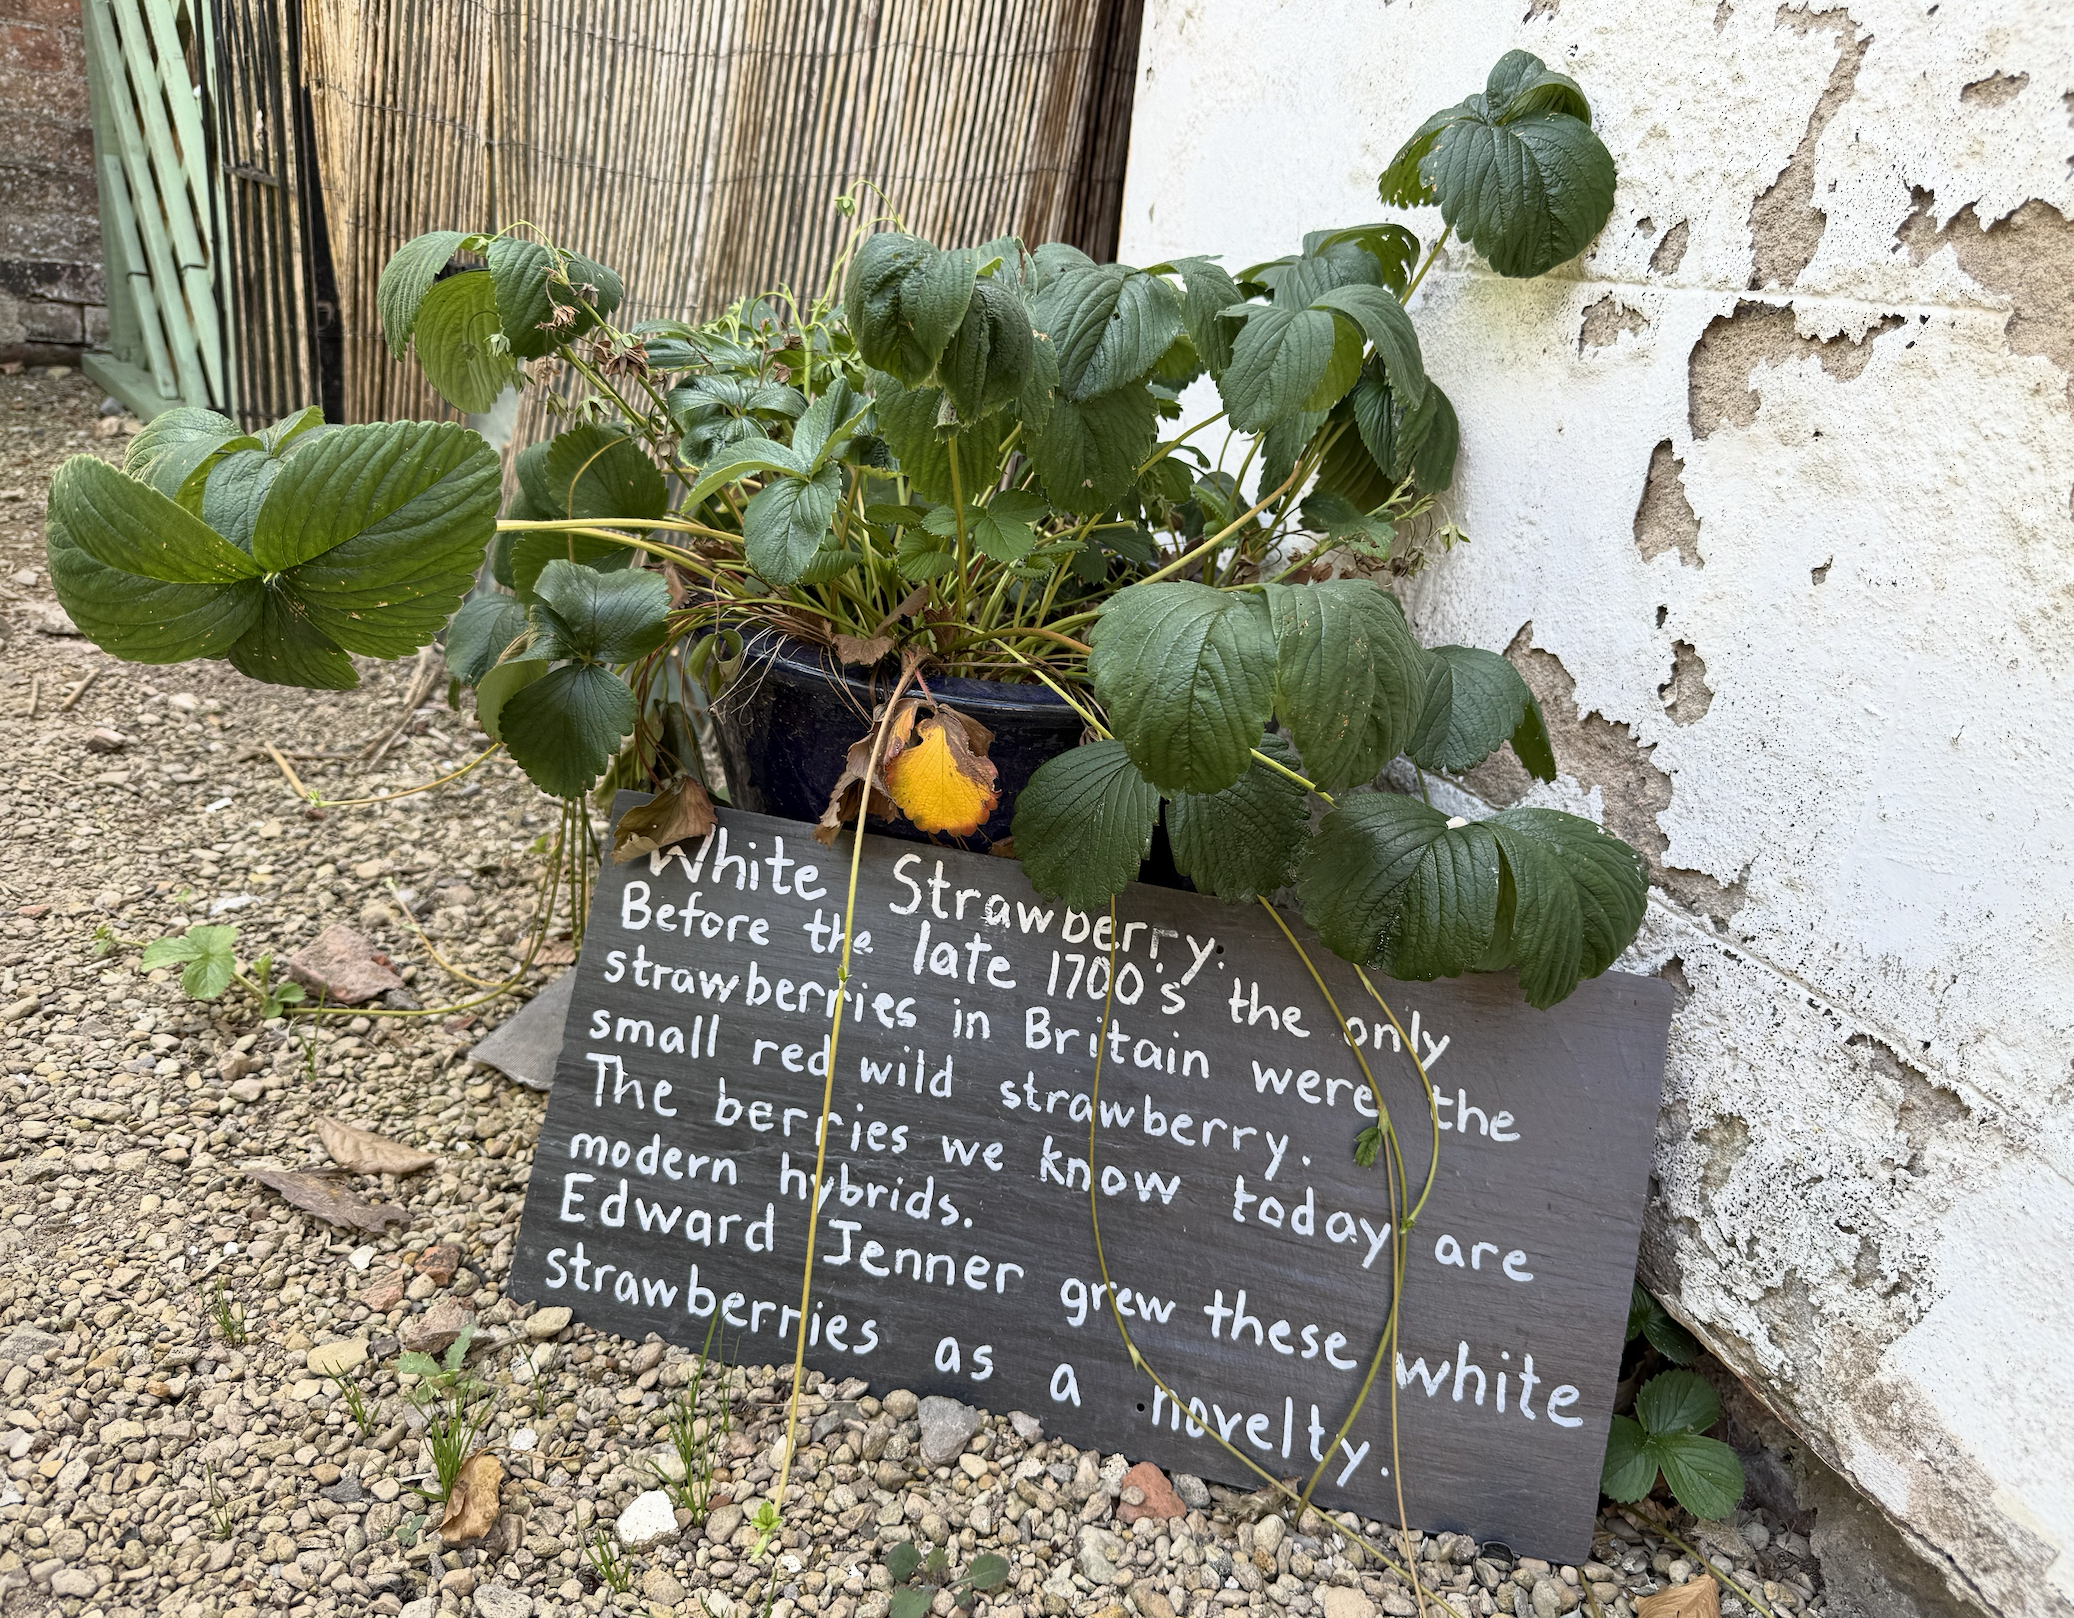 White Strawberry.
Before the late 1700's the only
strawberries in Britain were the
small red wild strawberry.
The berries we know today are
modern hybrids.
Edward Jenner grew these white
strawberries as a novelty.